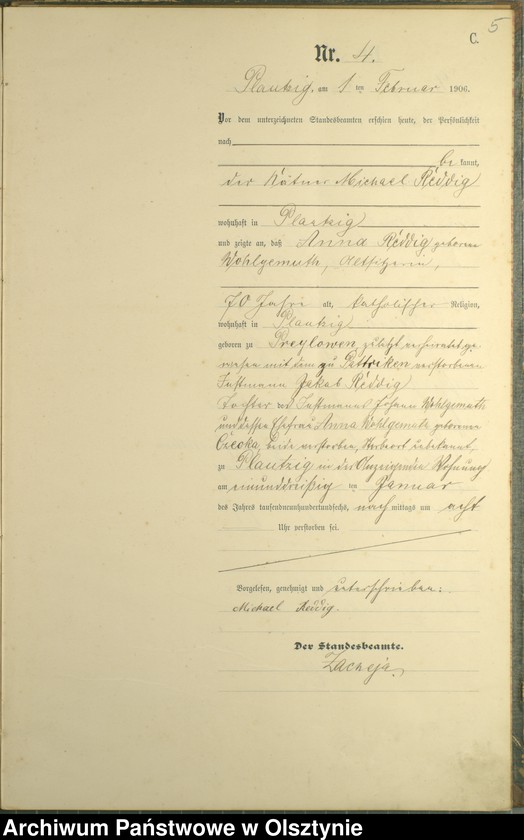 C. 5
Nr. 4.
Plautzig, am 1 ten Februar 1906.
Vor dem unterzeichneten Standesbeamten erschien heute, der Persönlichkeit
nach
be kannt,
der Kätner Michael Reddig
wohnhaft in Plautzig
und zeigte an, daß Anna Reddig geborene
Wohlgemuth, Altsitzerin,
70 Jahre alt, katholischer Religion,
wohnhaft in Plautzig
geboren zu Preylowen, zuletzt verheiratet ge
wesen mit dem zu Pattriken verstorbenen
Instmann Jakob Reddig
Tochter des Instmanns Johann Wohlgemuth
und dessen Ehefrau Anna Wohlgemuth geborenen
beide verstorben, Sterbeort unbekannt,
zu Plautzig in der Anzeigenden Wohnung
am einunddreißig ten Januar
des Jahres tausendneunhundertundsechs, nach mittags um acht
Uhr verstorben sei.
Vorgelesen, genehmigt und unterschrieben:
Michael Reddig.
Der Standesbeamte.
Zacheja
Archiwum Państwowe w Olsztynie